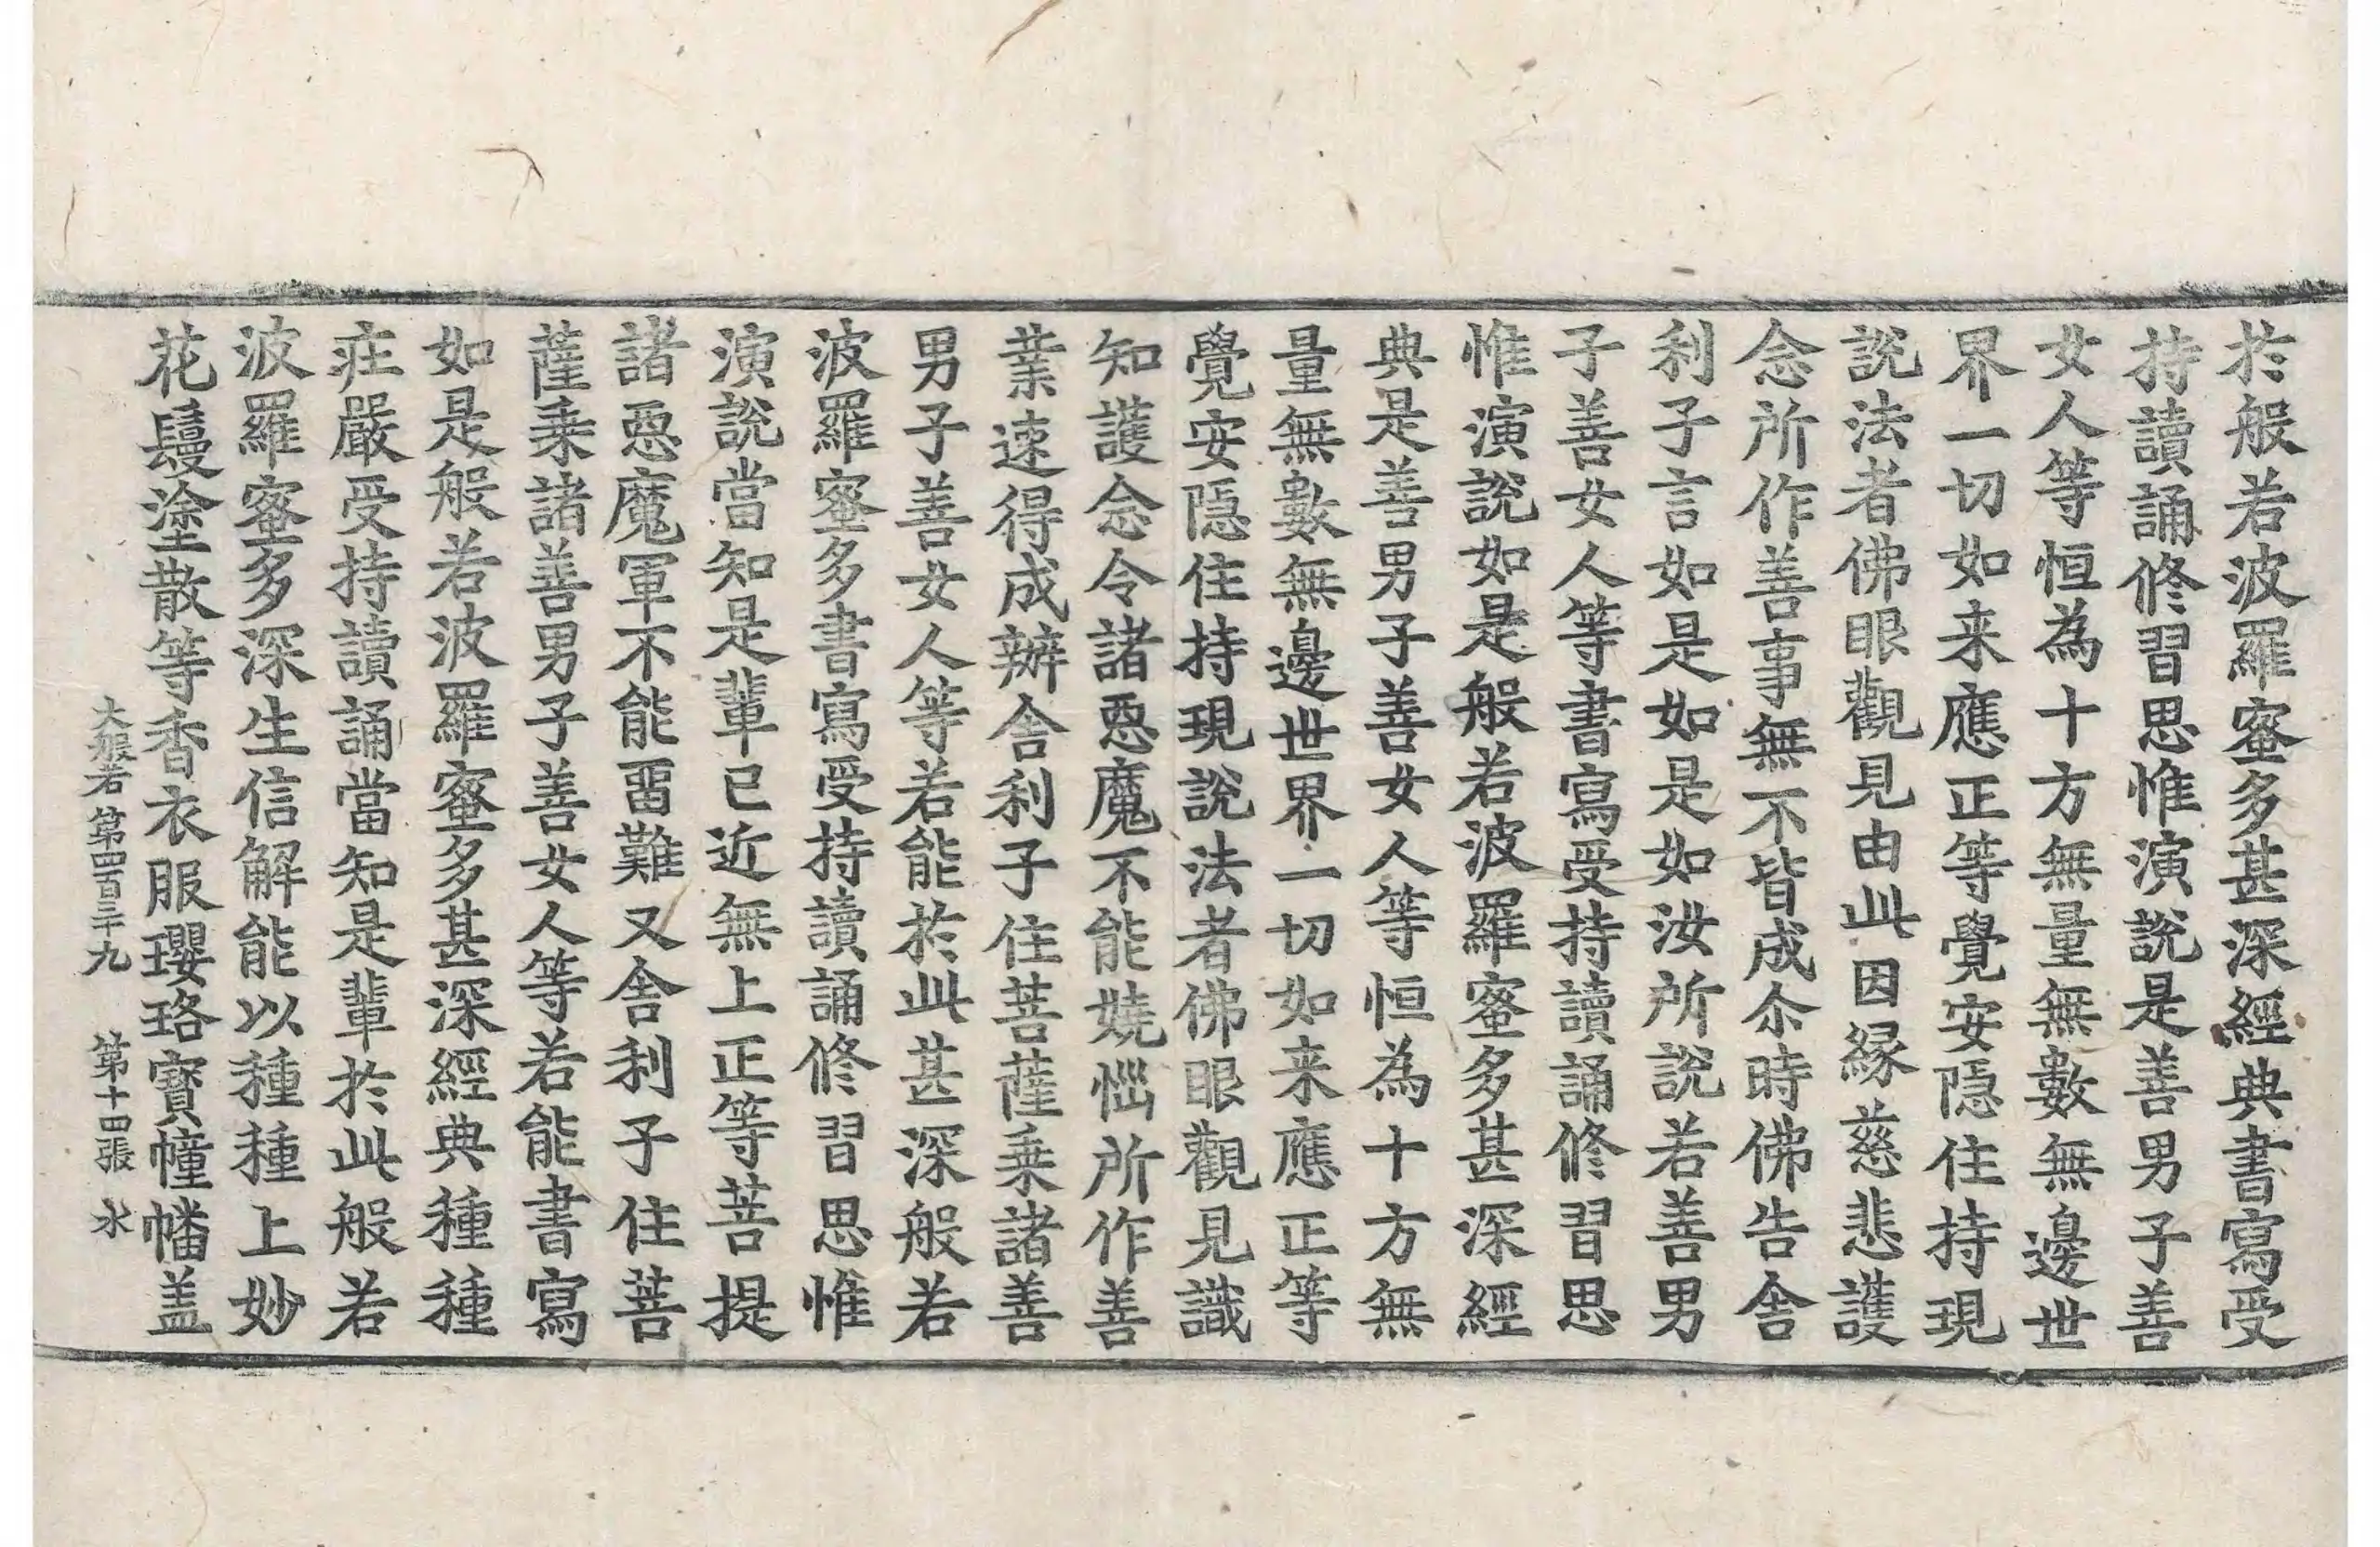 於般若波羅蜜多甚深經典書寫受
持讀誦修習思惟演說是善男子善
女人等恒為十方無量無數無邊世
界一切如来應正等覺安隱住持現
說法者佛眼觀見由此因緣慈悲護
念所作善事無不皆成尒時佛告舍
利子言如是如是如汝所說若善男
子善女人等書寫受持讀誦修習思
惟演說如是般若波羅蜜多甚深經
典是善男子善女人等恒為十方無
量無數無邊世界一切如来應正等
覺安隱住持現說法者佛眼觀見識
知護念令諸惡魔不能嬈惱所作善
業速得成辦舍利子住菩薩乗諸善
男子善女人等若能於此甚深般若
波羅蜜多書寫受持讀誦修習思惟
演說當知是輩已近無上正等菩提
諸惡魔軍不能畱難又舍利子住菩
薩乗諸善男子善女人等若能書寫
如是般若波羅蜜多甚深經典種種
莊嚴受持讀誦當知是輩於此般若
波羅蜜多深生信解能以種種上妙
花鬘塗散等香衣服瓔珞寶幢幡盖
大般若第四百三十九 第十四張 水